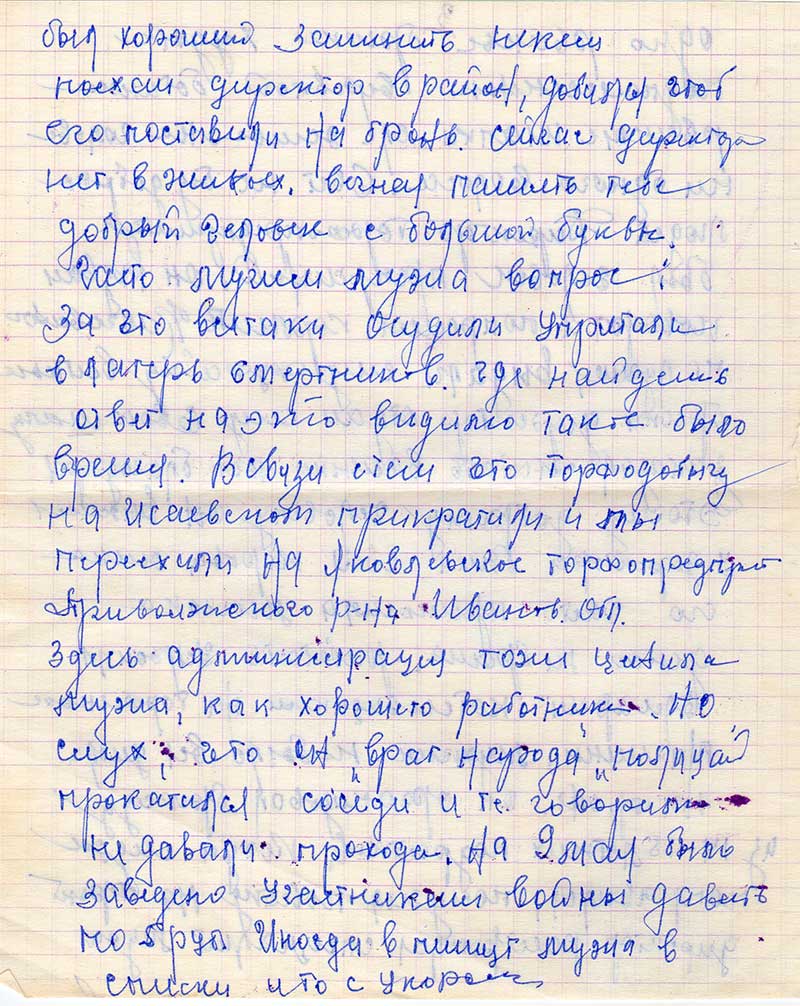 был хороший заминить некем
поехал директор в район, добился чтоб
его поставили на бронь. сейчас директора
нет в живых. вечная память тебе
добрый человек с большой буквы.
Часто мучил мужа вопрос:
За что вытаки осудили упрятали
в лагерь смертников. где найдешь
ответ на это видимо такое было
время. В связи стем что торфодобычу
на Исаевском прикратили и мы
переехали на Яковлевское торфопредприят
Приволжского р-на Иванов. Обл.
Здесь администрация тоже ценила
мужа, как хорошего работника. но
слух, что он "враг народа" полицай
прокатился соседи и те говорили
не давали прохода. На 9 мая было
заведено участникам войны давать
по 5 руб Иногда впишут мужа в
списки и то с укором